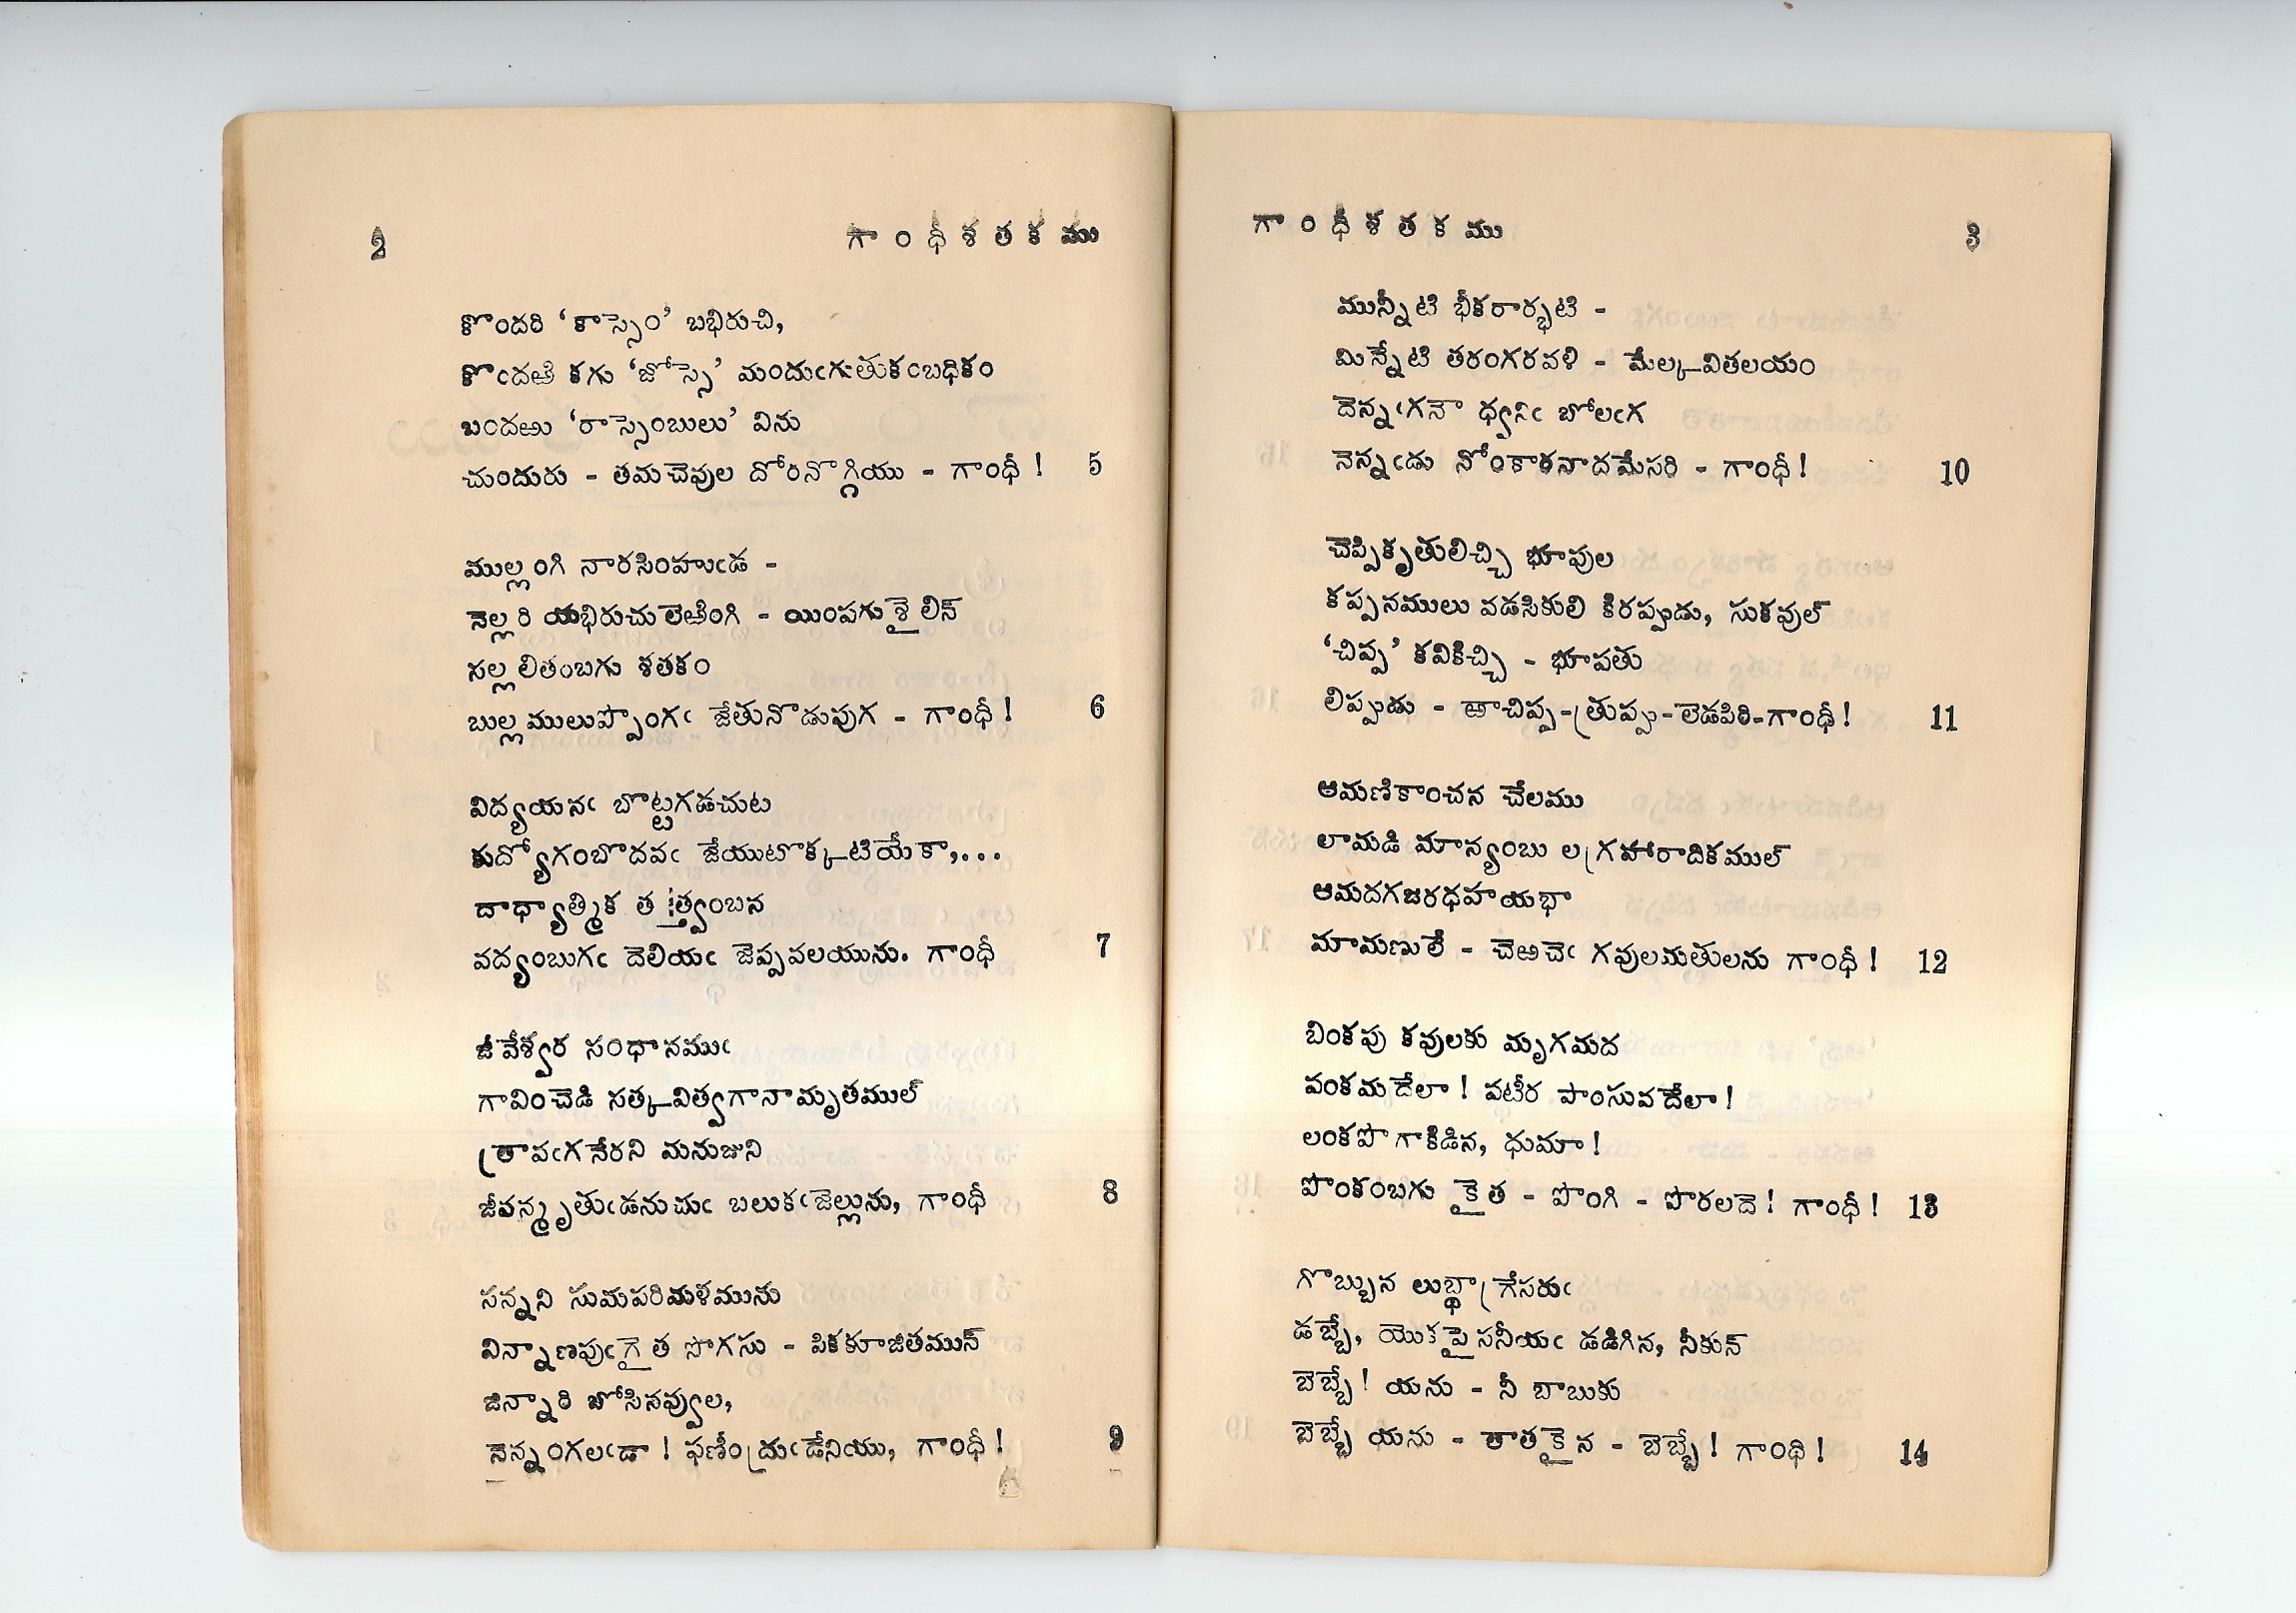 2 గాంధీశతకము
కొందరి ‘కాస్సెం’ బభిరుచి,
కొందఱి కగు ‘జోస్సె’ మందుఁగుతుకంబధికం
బందఱు ‘రాస్సెంబులు’ విను
చుందురు - తమచెవుల దోరనొగ్గియు - గాంధీ! 5
ముల్లంగి నారసింహుఁడ -
నెల్లరి యభిరుచులెఱింగి - యింపగుశైలిన్
సల్లలితంబగు శతకం
బుల్లములుప్పొంగఁ జేతునొడుపుగ - గాంధీ! 6
విద్యయనఁ బొట్టగడచుట
కుద్యోగంబొదవఁ జేయుటొక్కటియేకా,...
దాధ్యాత్మిక తత్త్వంబన
వద్యంబుగఁ దెలియఁ జెప్పవలయును. గాంధీ 7
జీవేశ్వర సంధానముఁ
గావించెడి సత్కవిత్వగానామృతముల్
త్రావఁగనేరని మనుజుని
జీవన్మృతుఁడనుచుఁ బలుకఁజెల్లును, గాంధీ 8
సన్నని సుమపరిమళమును
విన్నాణపుఁగైత సొగసు - పికకూజితమున్
జిన్నారి బోసినవ్వుల,
నెన్నంగలఁడా! ఫణీంద్రుఁడేనియు, గాంధీ! 9
గాంధీశతకము 3
మున్నీటి భీకరార్భటి -
మిన్నేటి తరంగరవళి - మేల్కవితలయం
దెన్నఁగనౌ ధ్వనిఁ బోలఁగ
నెన్నఁడు నోంకారనాదమేసరి - గాంధీ! 10
చెప్పికృతులిచ్చి భూపుల
కప్పనములు వడసికులి కిరప్పుడు, సుకవుల్
‘చిప్ప’ కవికిచ్చి - భూపతు
లిప్పుడు - ఱాచిప్ప-త్రుప్పు-లెడపిరి-గాంధీ! 11
ఆమణికాంచన చేలము
లామడి మాన్యంబు లగ్రహారాదికముల్
ఆమదగజరధహయభా
మామణులే - చెఱచెఁ గవులమతులను గాంధీ! 12
బింకపు కవులకు మృగమద
పంకమదేలా! పటీర పాంసువదేలా!
లంకపొగాకిడిన, ధుమా!
పొంకంబగు కైత - పొంగి - పొరలదె! గాంధీ! 13
గొబ్బున లుబ్ధాగ్రేసరుఁ
డబ్బే, యొకపైసనీయఁ డడిగిన, నీకున్
బెబ్బే! యను - నీ బాబుకు
బెబ్బే యను - తాతకైన - బెబ్బే! గాంధి! 14